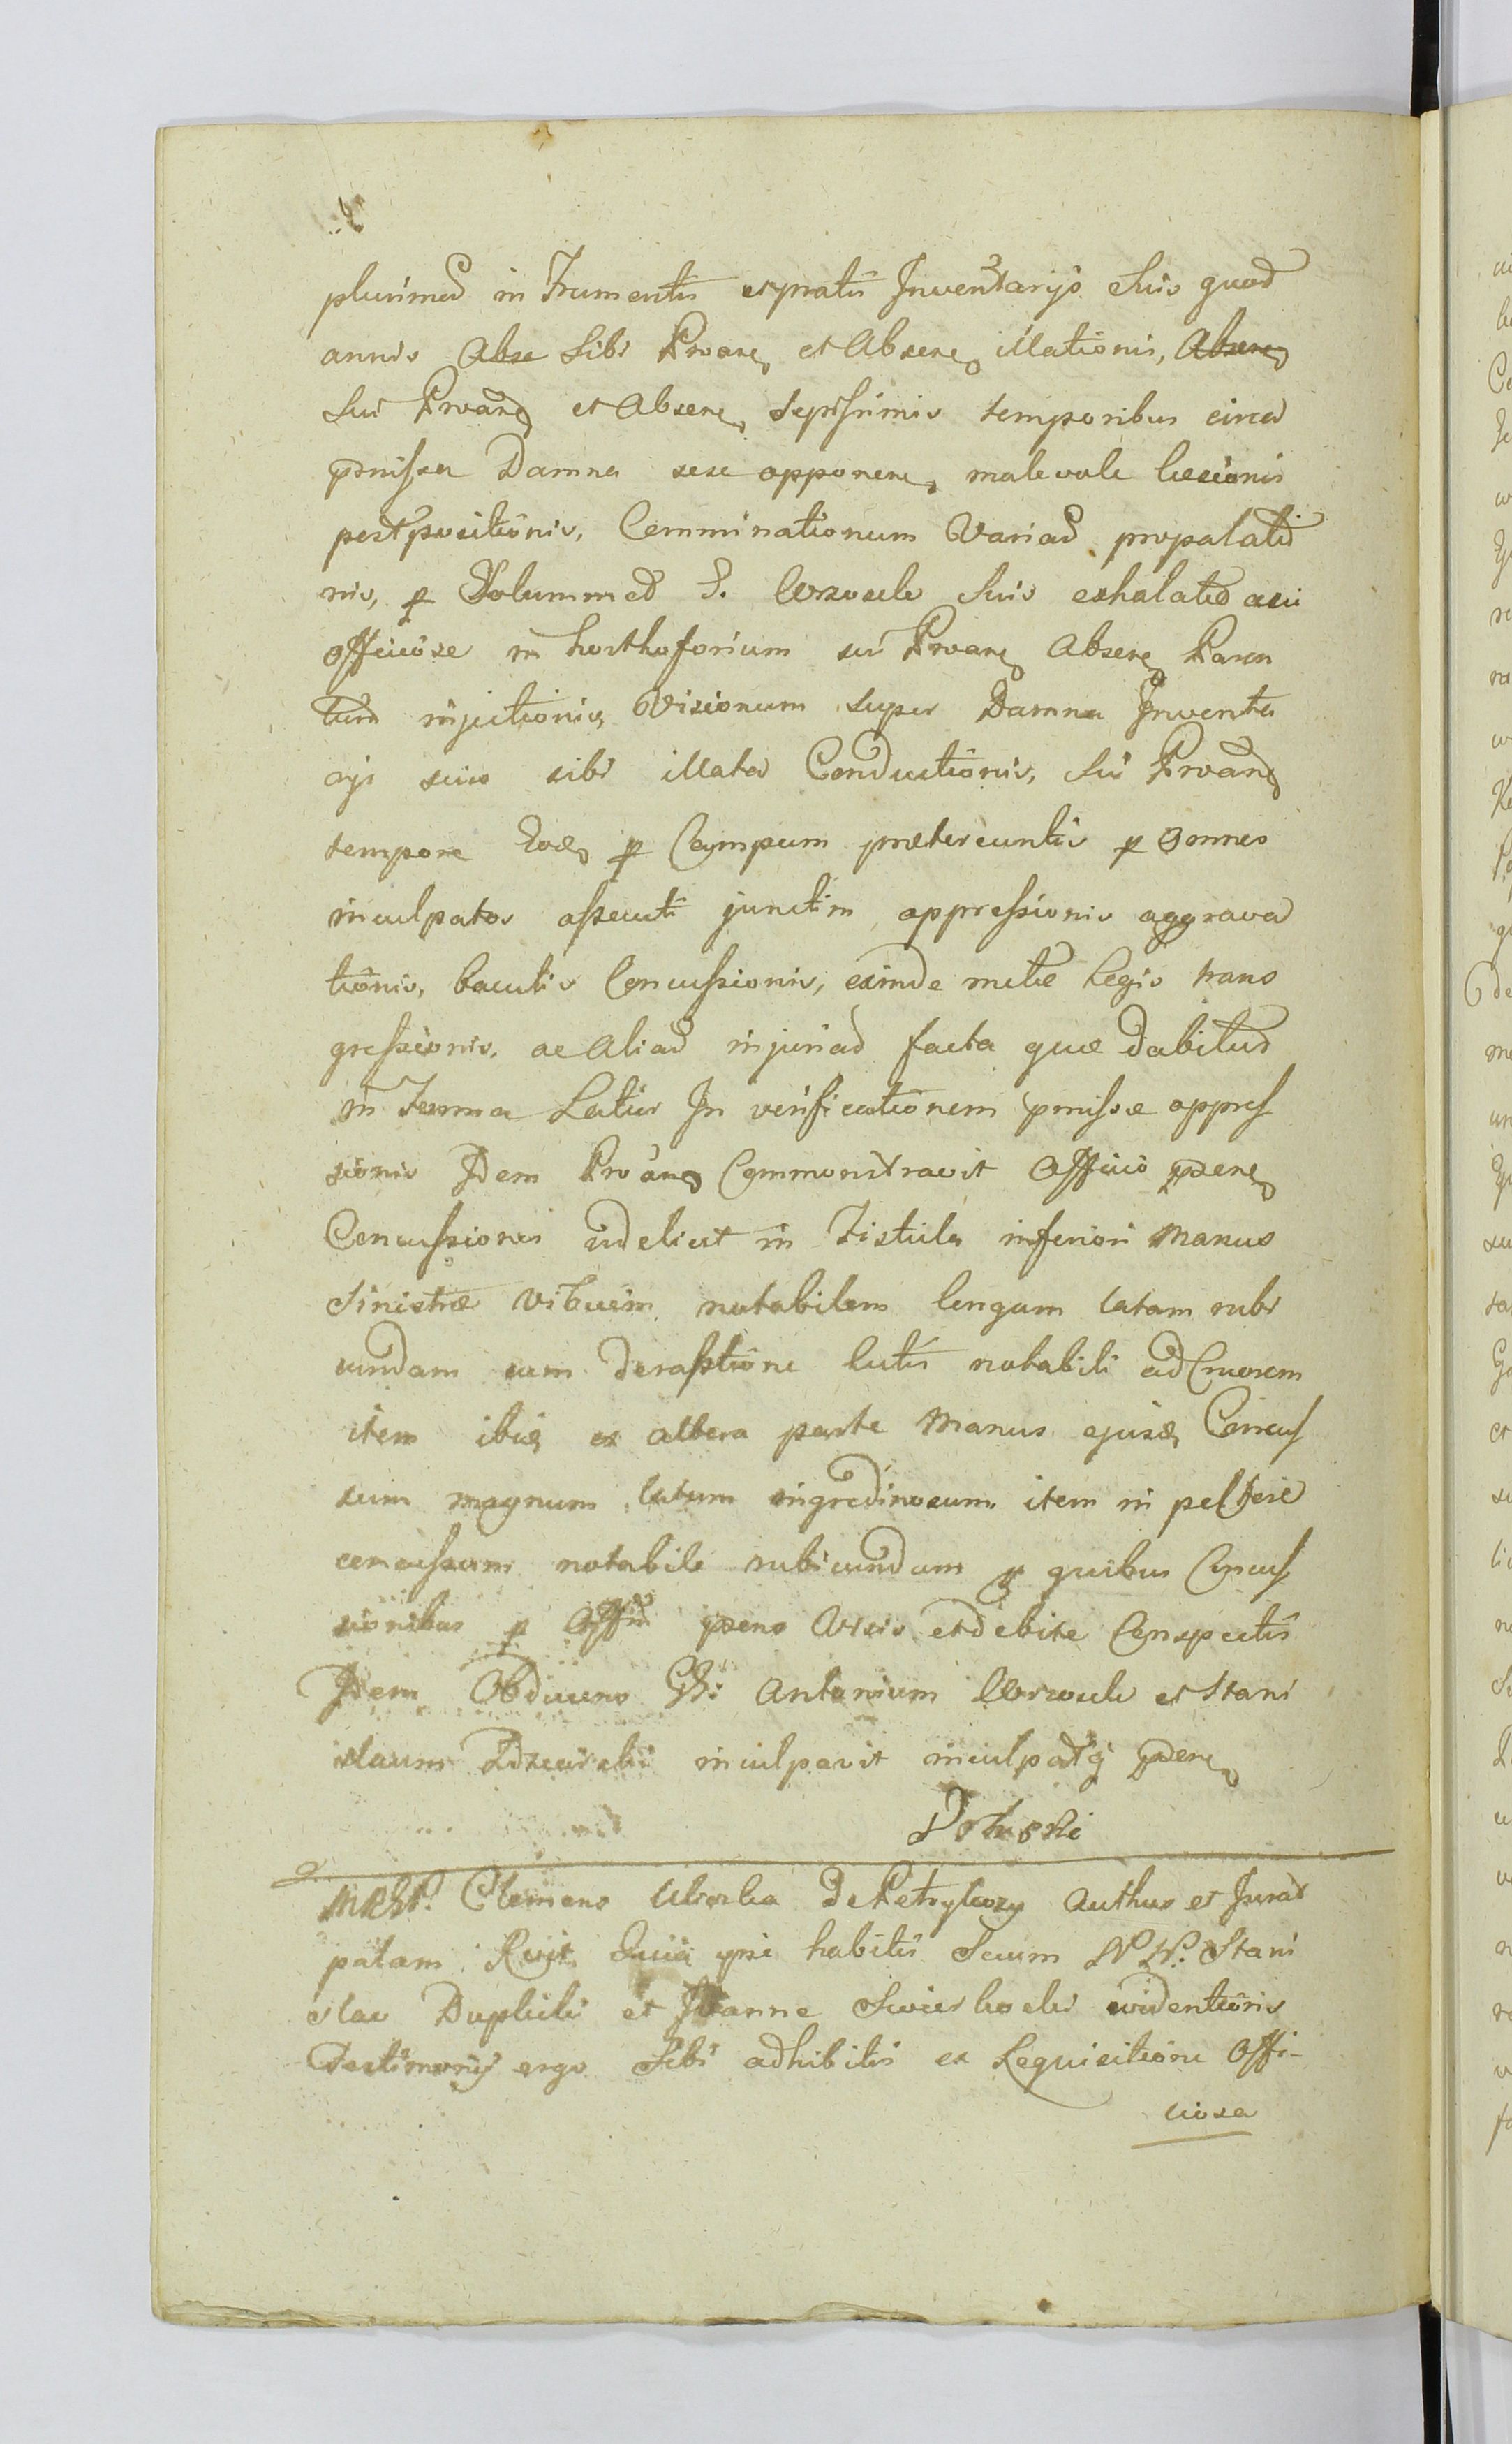 plurimad in Frumentis et pratis Inventarijs Suis quod
annis Abse Sibi Proan et Absen illationis, Absen
Sui Proan et Absen Sepissimis temporibus circa
pmissa Damna sese opponen malevole laesionis
postpositionis, Comminationum Variad propalatio
nis, p Solummod S. Wrzosek Suis exhalatio acu
officiose in horthoforium sui Proan Absen Paren
tum injectionis Visionum super Damna Inventa
rijs suis sibi illata Conductionis, Sui Proan
tempore Eod p Campum praetereuntis p omnes
inculpatos assecuti junctim oppressionis aggrava
tionis, baculis Concussionis, exinde metae Legis trans
gressionis, ac Aliad injuriad facta quae dabitur
in Termino Latius In verificationem pmissae oppres
sionis Idem Proan Commonstravit Officio psen
Concussiones videlicet in Fistula inferiori Manus
Sinistrae Vibicem notabilem longam latam rubi
cundam cum derasstione Cutis notabili ad Cruorem
item ibid ex altera parte Manus ejusd Concus
sum magnum latum ingredinosum item in pectore
concussum notabile rubicundum p quibus Concus
sionibus p Offm psens Visis et debite Conspectis
Idem Obducens Gbi Antonium Wrzosek et Stani
slaum Zdzarski inculpavit inculpatq psen
Dołuski
Mnstl. Clemens Ulaska De Petrykozy Authus et Jurat
palam Recgt Quia ipse habitis Secum NN. Stani
slao Duplicki et Joanne Swierkoski evidentioris
Testimonij ergo Sibi adhibitis ex Requisitione Offi-
ciosa